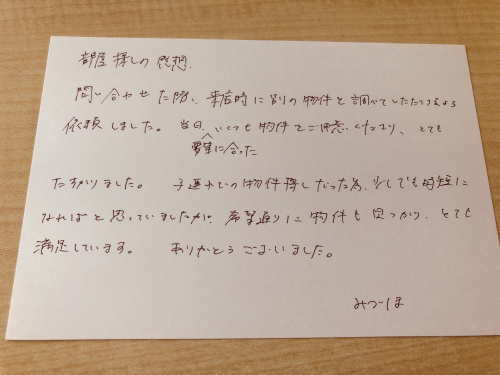 部屋探しの感想.
問い合わせた際、来店時に別の物件を調べていただけるよう
依頼しました。当日、いくつも物件をご用意くださり、とても
要望に合った
たすかりました。子連れでの物件探しだった為、少しでも時短に
なればと思っていましたが、希望通りに物件も見つかり、とても
満足しています。ありがとうございました。
みづほ